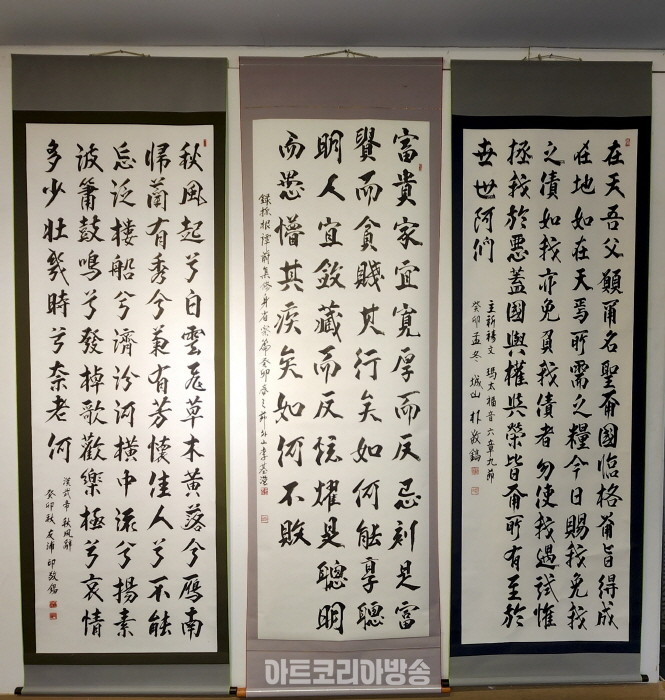 在天吾父願爾名聖爾國臨格爾旨得成
在地如在天焉所需之糧今日賜我免我
之債如我亦免負我債者勿使我遇試惟
拯我於惡蓋國與權與榮皆爾所有至於
世世阿们
主祈禱文 瑪太福音六章九節
癸卯孟冬 城山 朴敬鎬
富貴家宜寬厚而反忌刻是富
貴而貧賤其行矣如何能享聰
明人宜斂藏而反炫耀是聰明
而愚懵其疾矣如何不敗
錄採根譚前集修身省察篇癸卯春之節
秋風起兮白雲飛草木黃落兮雁南
帰蘭有秀兮菊有芳懷佳人兮不能
忘泛楼船兮濟汾河橫中流兮揚素
波簫鼓鳴兮發棹歌歡樂極兮哀情
多少壯幾時兮奈老何
漢武帝 秋風辭
癸卯秋 友浦 印敬錫
아트코리아방송